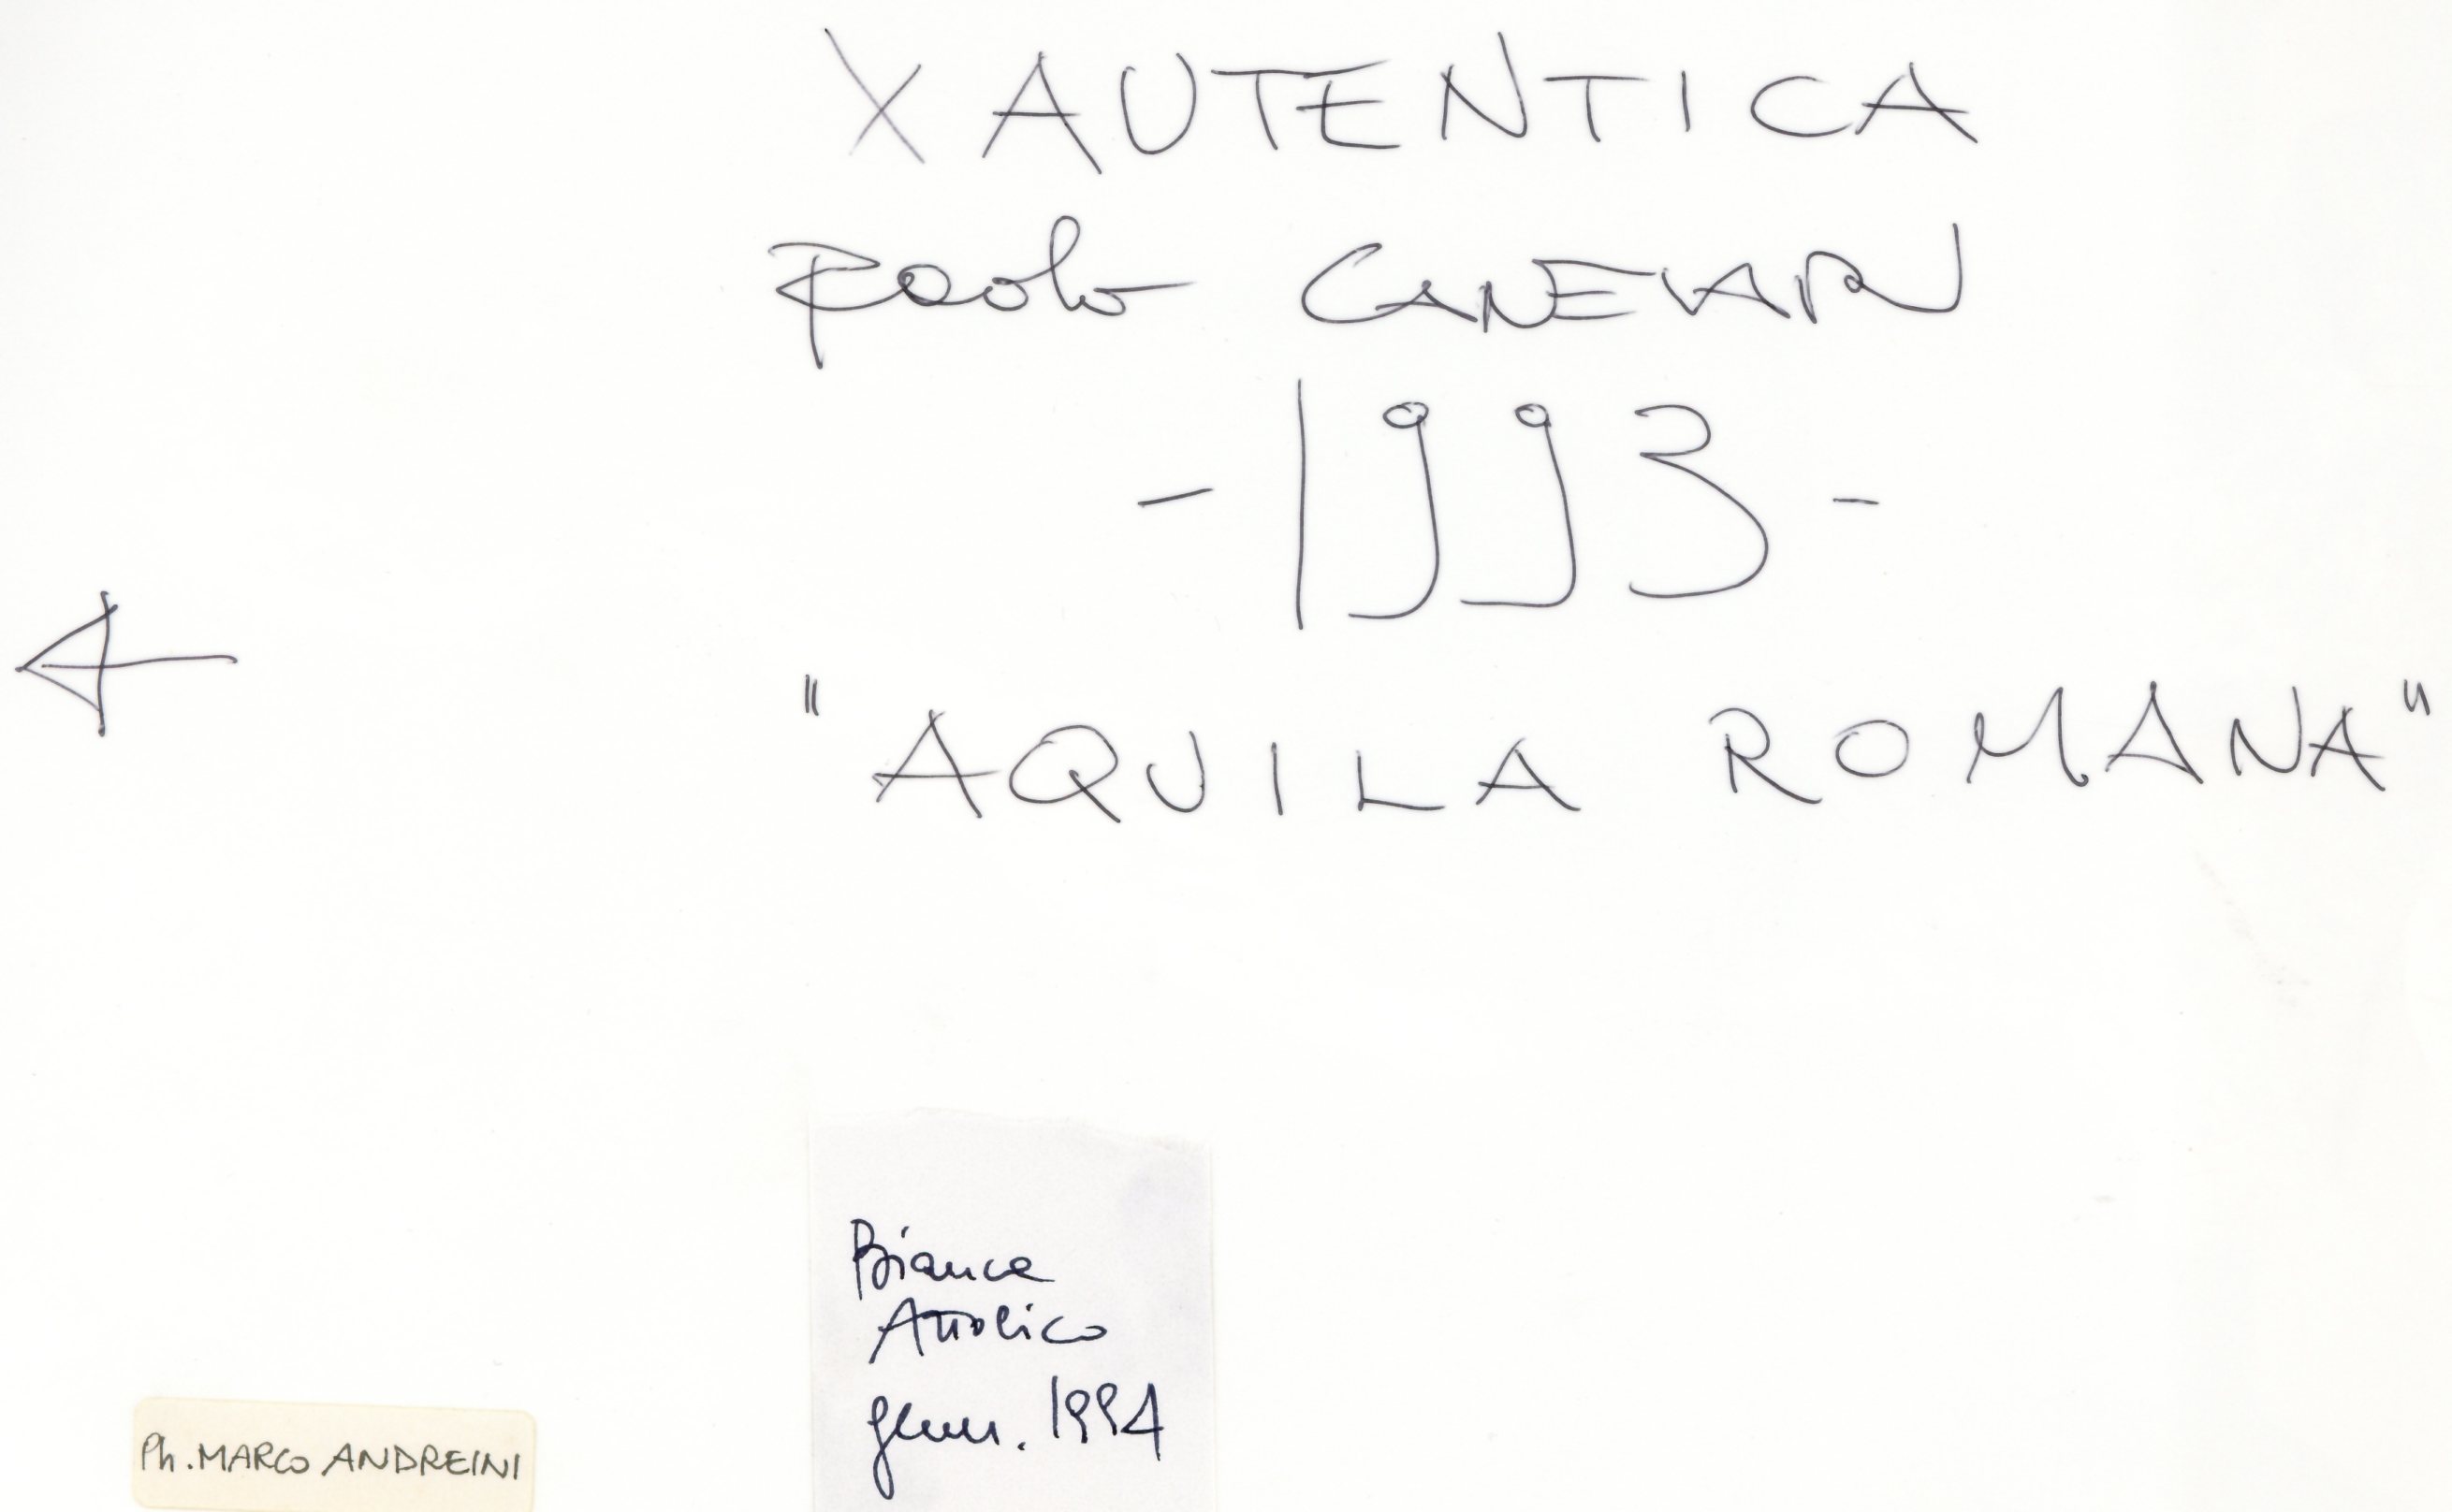 X AUTENTICA
Paolo CANEVARI
- 1993 -
"AQUILA ROMANA"
Bianca
Attolico
genn. 1994
Ph. MARCO ANDREINI